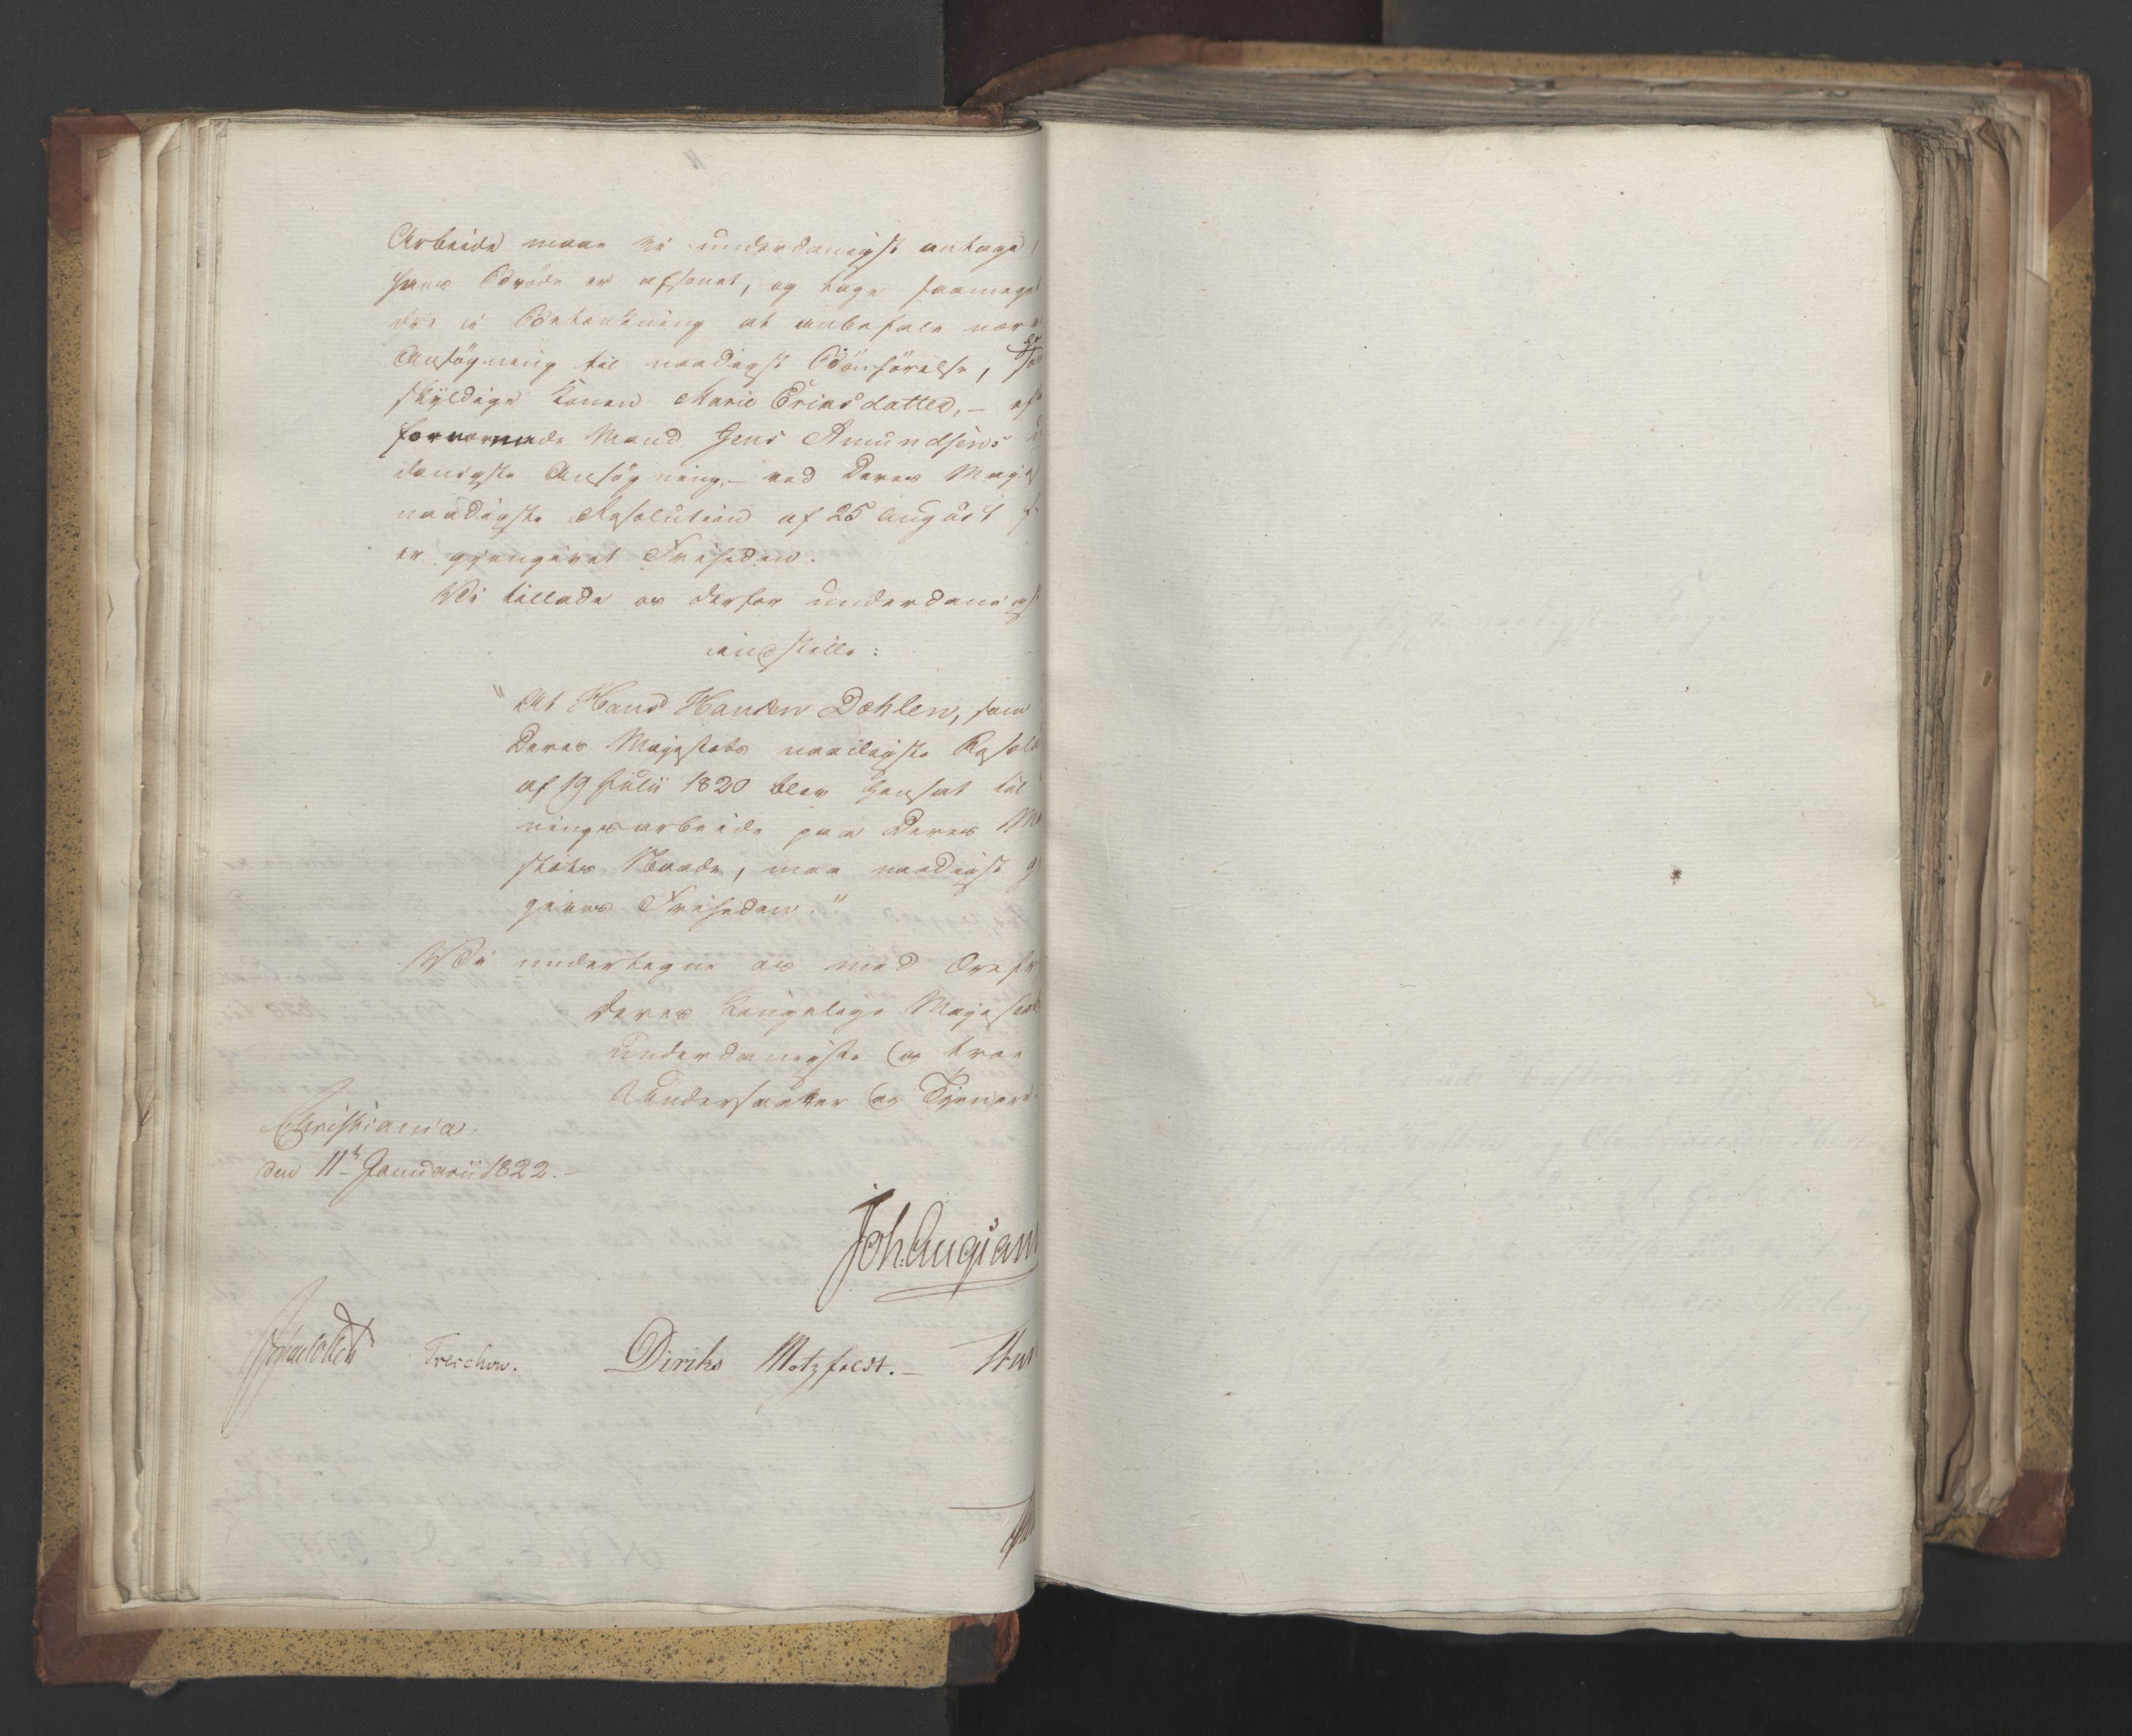 Arbeide maae vi underdanigst antage,
hans Brøde er afsonet, og tage saameget
dre i Betænkning at anbefale nær
Ansøgning til naadigst Bønhørelse,
skyldige Konen Marie Ericsdatter, – ef
fornævnede Mand Jens Amundsens
danigste Ansøgning, – ved Deres Maje
naadigste Resolution af 25 August f.
er gjengivet Friheden.
Vi tillade os derfor underdanigst
indstille:
"At Hans Hansen Dæhlen, som
Deres Majestæts naadigste Resolu
af 19 Julii 1820 blev hensat til
ningsarbeide paa Deres Ma
stæts Naade, maa naadigst g
gives Friheden"
Vi undertegne os med Ærefr
Deres Kongelige Majestæts
underdanigste og troe
Undersaatter og Tjenere.
Christiania
den 11te Januarii 1822. –
Joh. Aug: San
Treschow. Diriks Motzfeldt. –